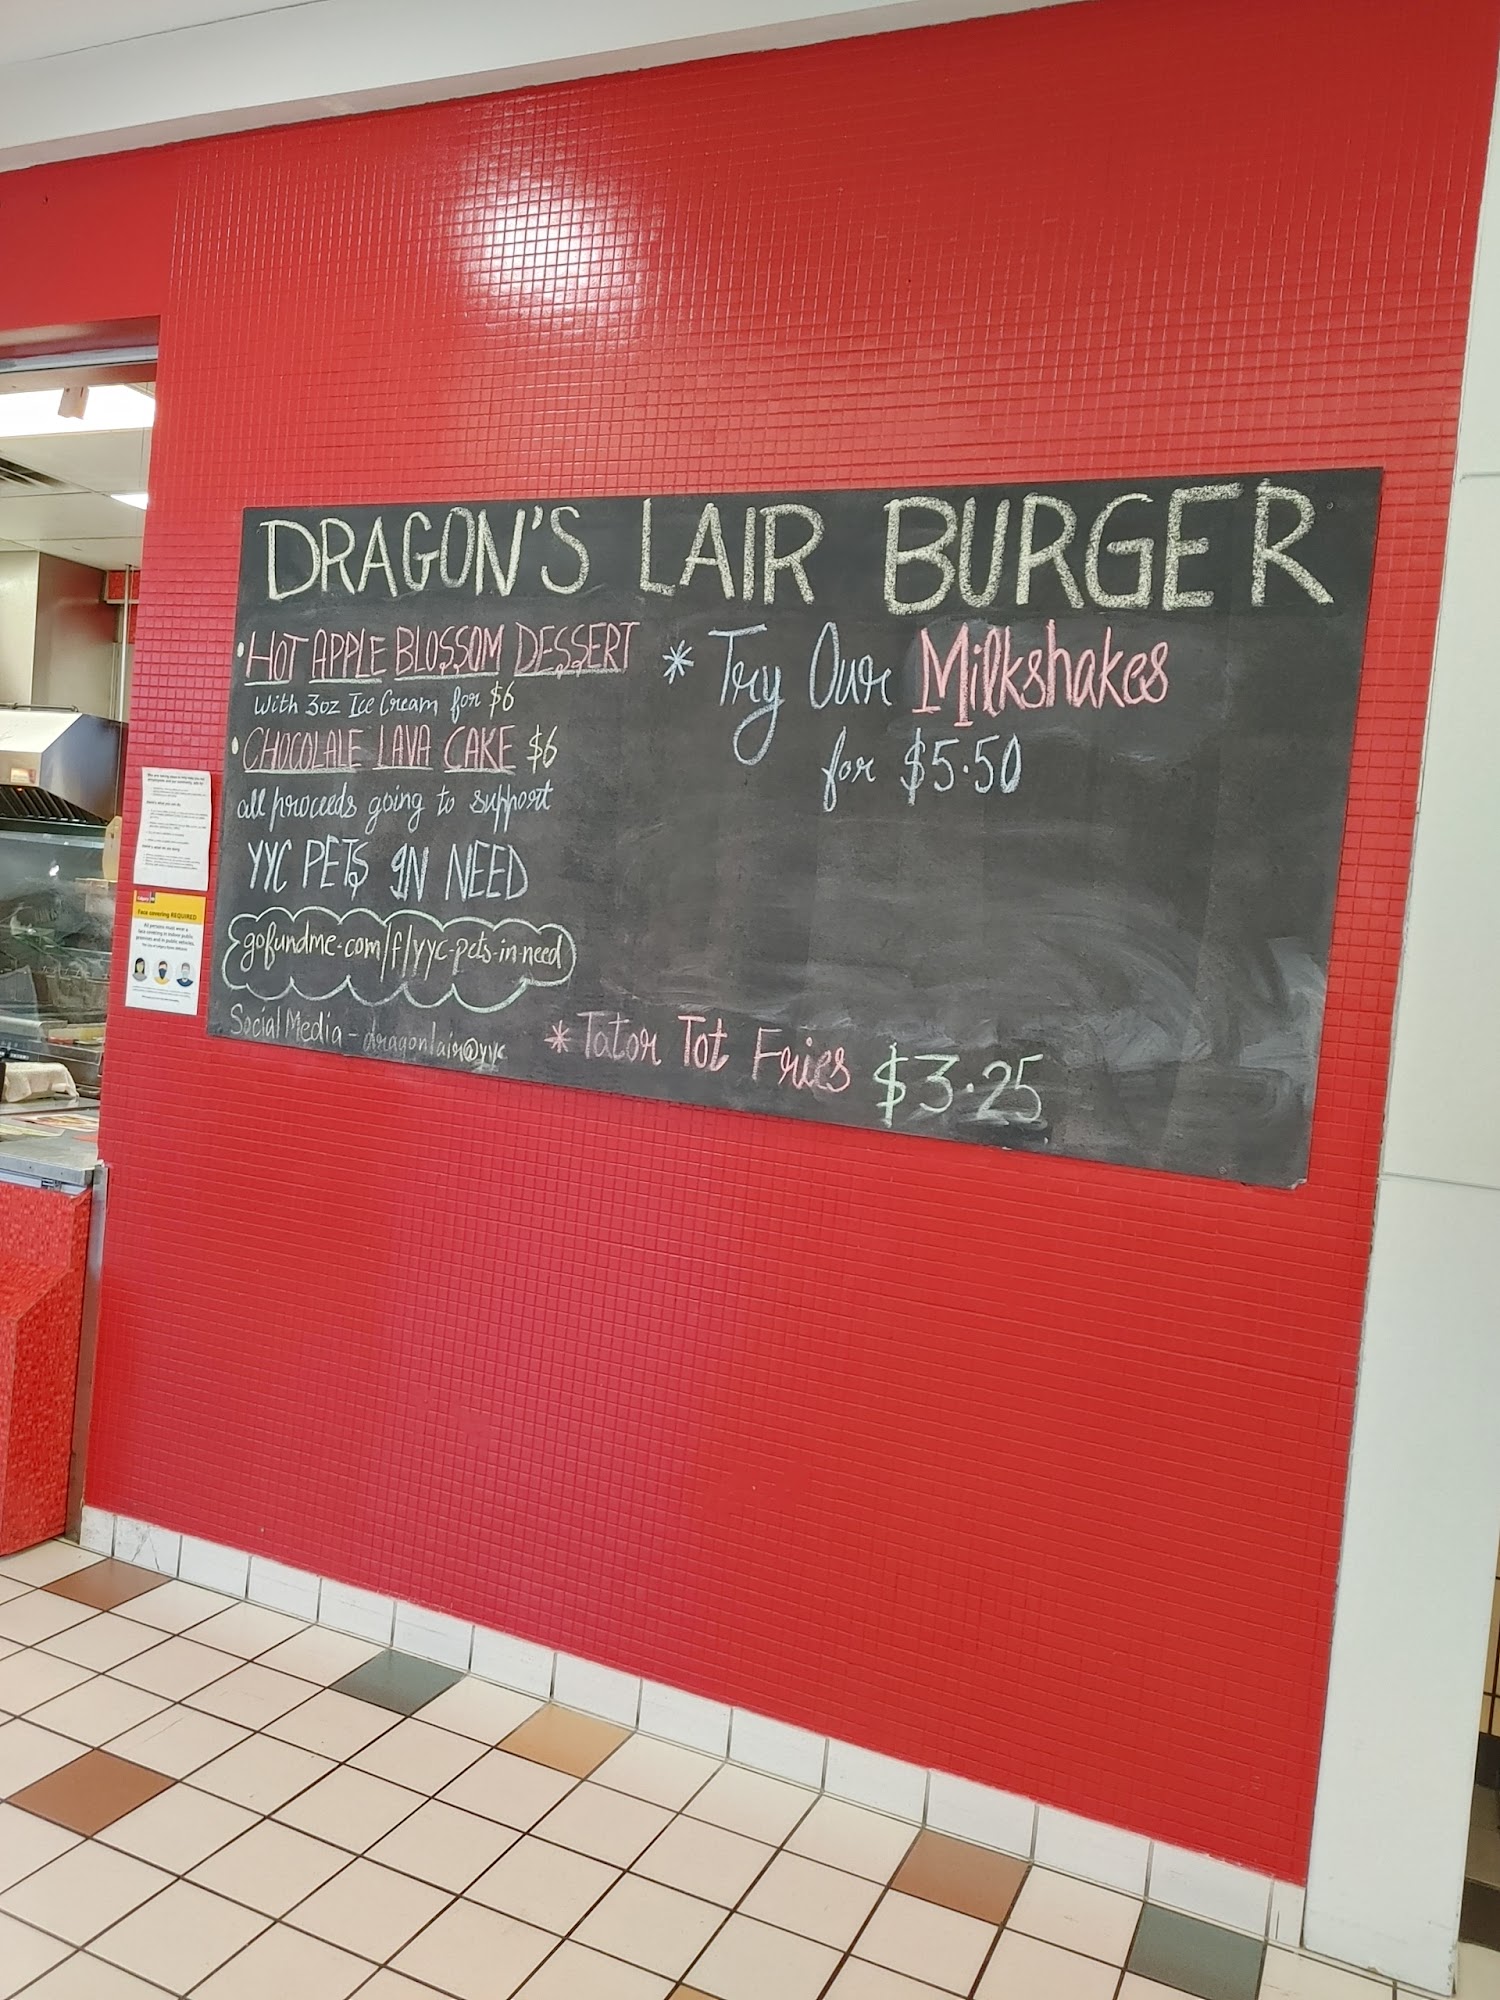 DRAGON'S LAIR BURGER
• HOT APPLE BLOSSOM DESSERT
With 3oz Ice Cream for $6
• CHOCOLALE LAVA CAKE $6
all proceeds going to support
YYC PETS IN NEED
gofundme.com/f/yyc-pets-in-need
Social Media - dragonlair@yyc
* Try Our Milkshakes
for $5.50
* Tator Tot Fries $3.25
Face covering REQUIRED